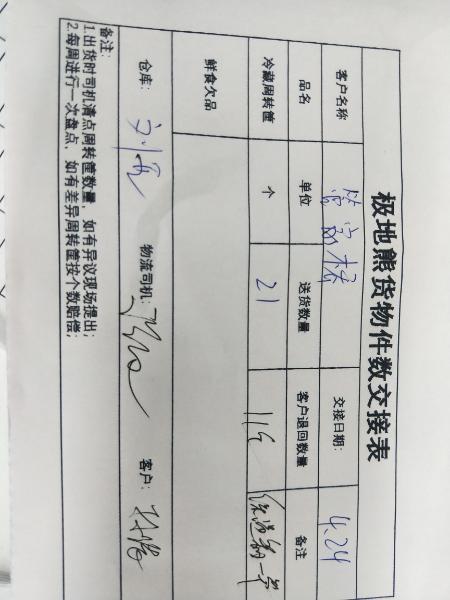 极地熊货物件数交接表
客户名称 交接日期: 4.24
品名 单位 送货数量 客户退回数量 备注
冷藏周转筐 个 21
鲜食欠品
仓库: 物流司机: 客户:
备注:
1.出货时司机清点周转筐数量,如有异议现场提出;
2.每周进行一次盘点,如有差异周转筐按个数赔偿;